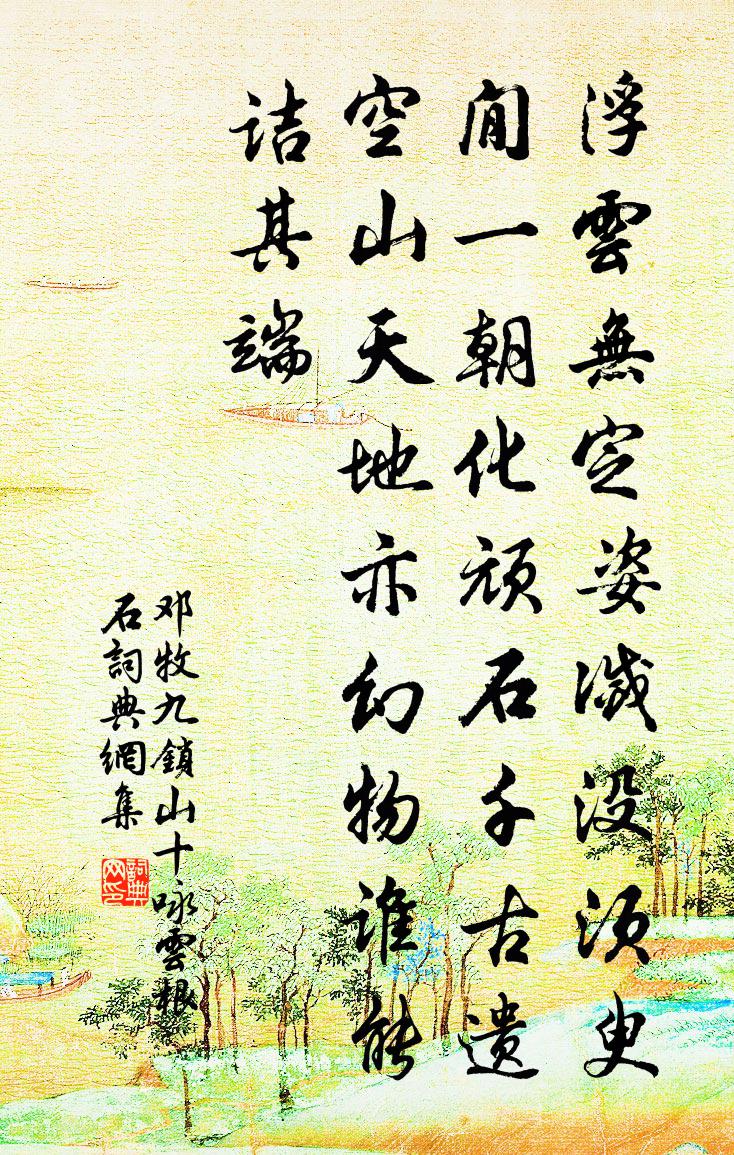 浮雲無定姿滅没須臾
間一朝化頑石千古遺
空山天地亦幻物誰能
詰其端
邓牧九鎖山十咏雲根
石詞典網集
詞典
网印